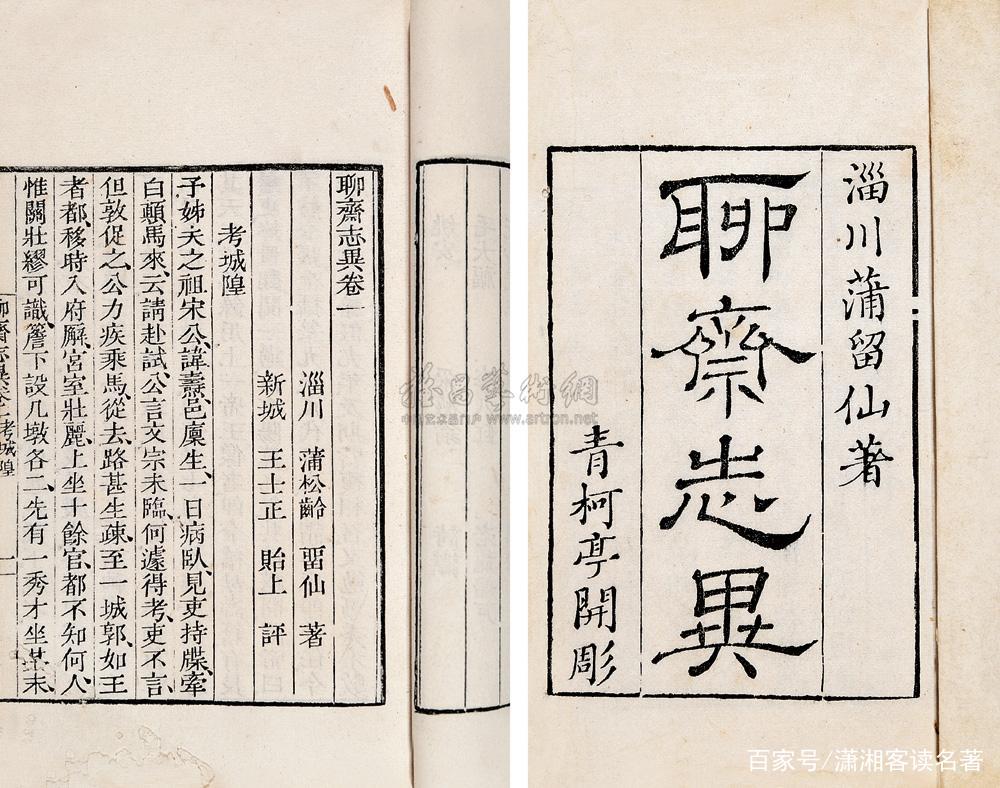 淄川蒲留仙著
聊齋志異
青柯亭開彫
聊齋志異卷一
淄川 蒲松齡 畱仙 著
新城 王士正 貽上 評
考城隍
予姊夫之祖宋公諱燾邑廩生一日病臥見吏持牒牽
白顛馬來云請赴試公言文宗未臨何遽得考吏不言
但敦促之公力疾乘馬從去路甚生疎至一城郭如王
者都移時入府廨宮室壯麗上坐十餘官都不知何人
惟關壯繆可識簷下設几墩各二先有一秀才坐其末
聊齋志異卷一 考城隍 一
www.artron.net
百家号/潇湘客读名著